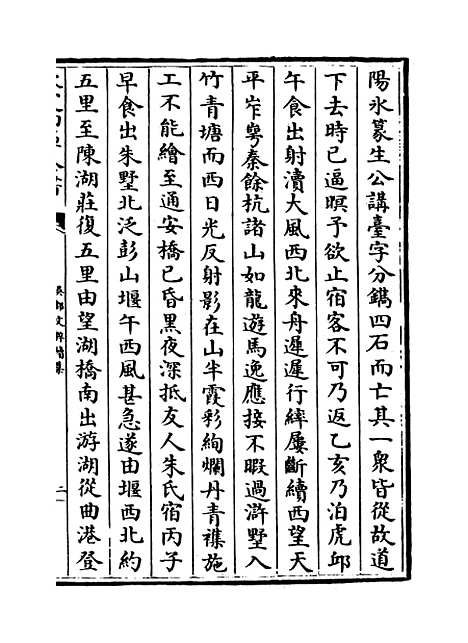 陽氷篆生公講臺字分鐫四石而亡其一衆皆從故道
下去時已逼暝予欲止宿客不可乃返乙亥乃泊虎邱
午食出射瀆大風西北來舟遲遲行縴屢斷續西望天
平岝㟧秦餘杭諸山如龍遊馬逸應接不暇過滸墅入
竹青塘而西日光反射影在山半霞彩絢爛丹青襍施
工不能繪至通安橋已昏黑夜深抵友人朱氏宿丙子
早食出朱墅北泛彭山堰午西風甚急遂由堰西北約
五里至陳湖莊復五里由望湖橋南出游湖從曲港登
吳都文粹續集